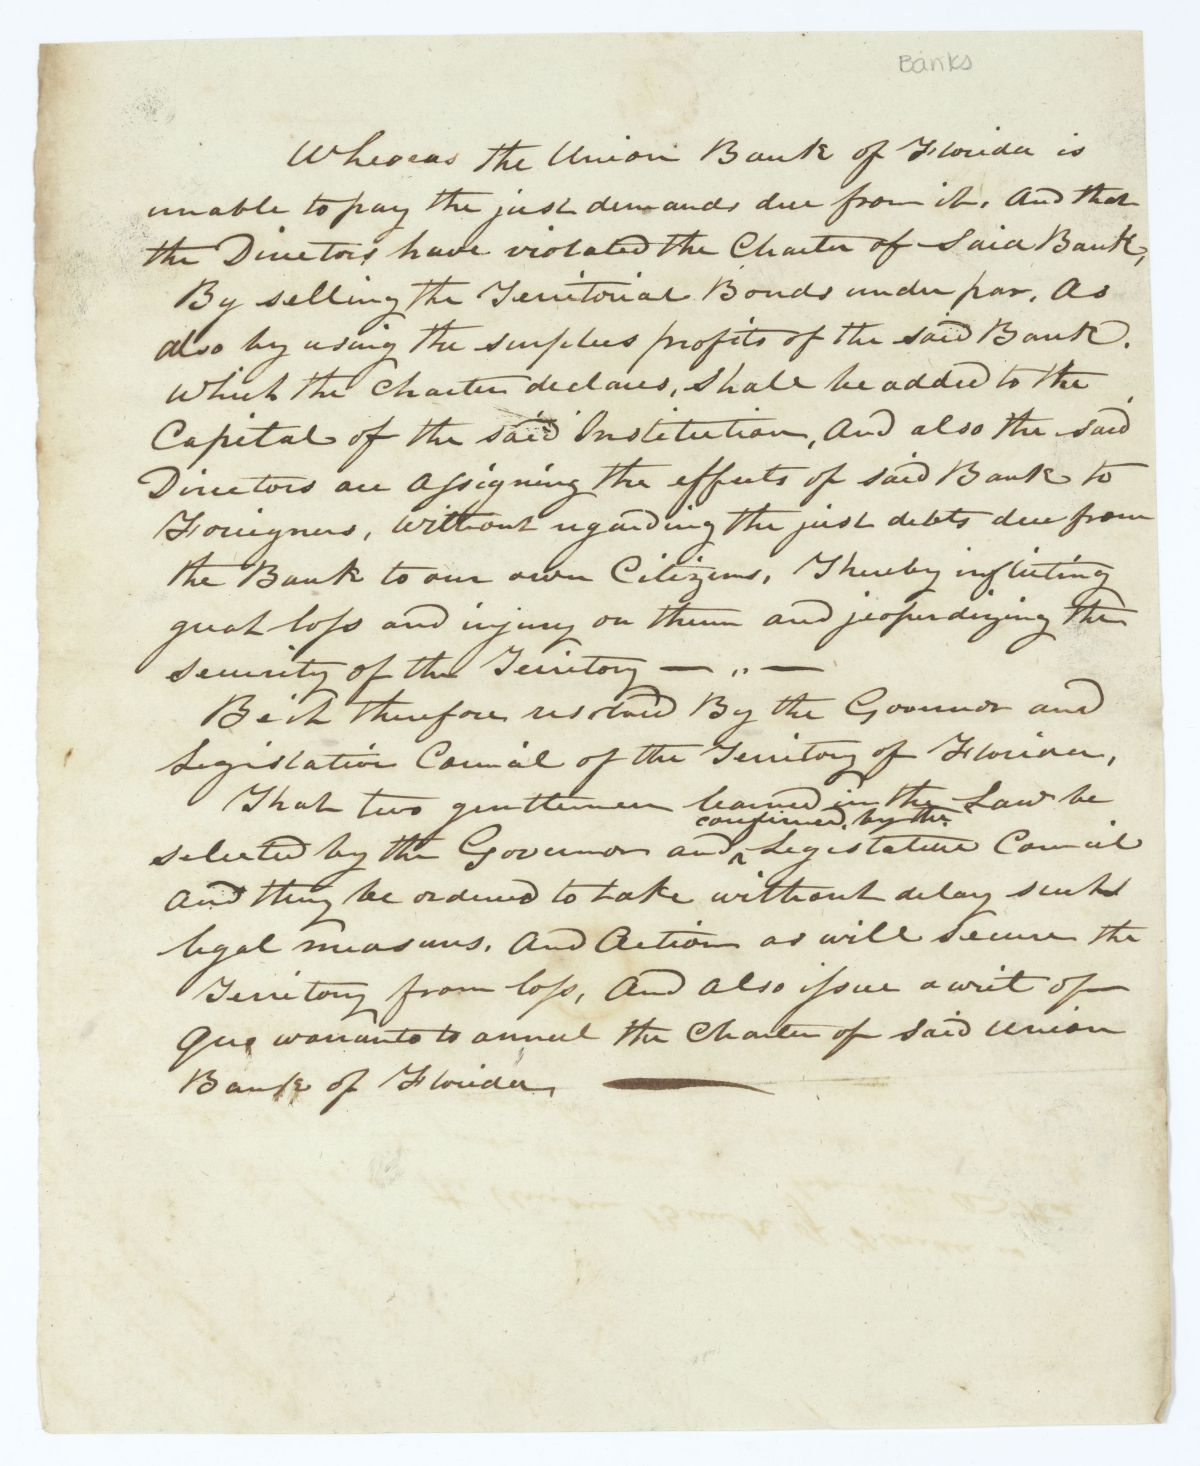 Banks
Whereas the Union Bank of Florida is
unable to pay the just demands due from it. And that
the Directors have violated the Charter of Said Bank,
By selling the Territorial Bonds under par. As
also by using the surplus profits of the said Bank.
Which the Charter declares, shall be added to the
Capital of the said Institution, And also the said
Directors are assigning the effects of said Bank to
Foreigners, Without regarding the just debts due from
the Bank to our own Citizens, Thereby inflicting
great loss and injury on them and jeoperdizing the
security of the Territory — " —
Be it therefore resolved By the Governor and
Legislative Council of the Territory of Florida,
That two gentlemen learned in the Law be
confirmed by the
selected by the Governor and ^ Legislative Council
And they be ordered to take without delay such
legal measures. And Action as will secure the
Territory from loss, And also issue a writ of
Quo warranto to annul the Charter of said Union
Bank of Florida,